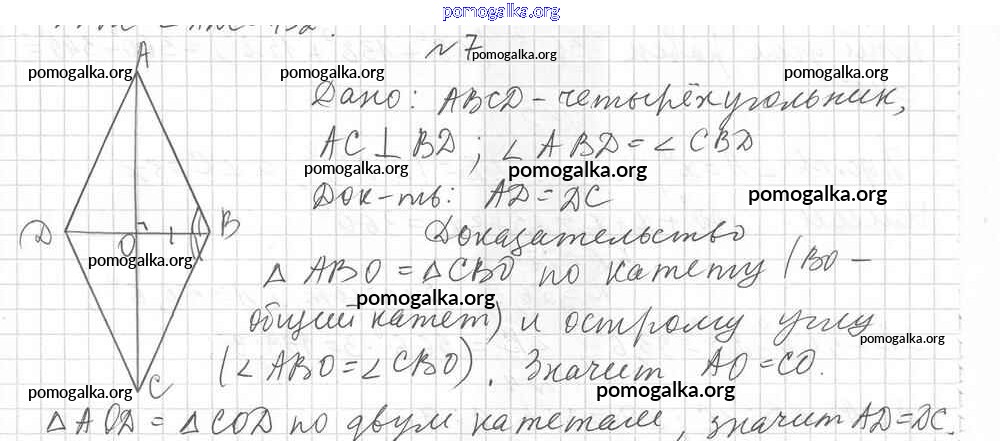 pomogalka.org
№ 7
pomogalka.org
pomogalka.org pomogalka.org pomogalka.org
A
Дано: ABCD - четырёхугольник,
AC ⊥ BD ; ∠ ABD = ∠ CBD
pomogalka.org pomogalka.org
Док-ть: AD = DC
pomogalka.org
D O B
Доказательство
pomogalka.org
△ ABO = △ CBO по катету (BO -
pomogalka.org
общий катет) и острому углу
pomogalka.org
(∠ ABO = ∠ CBO). Значит AO = CO.
C
pomogalka.org pomogalka.org
△ AOD = △ COD по двум катетам, значит AD = DC.